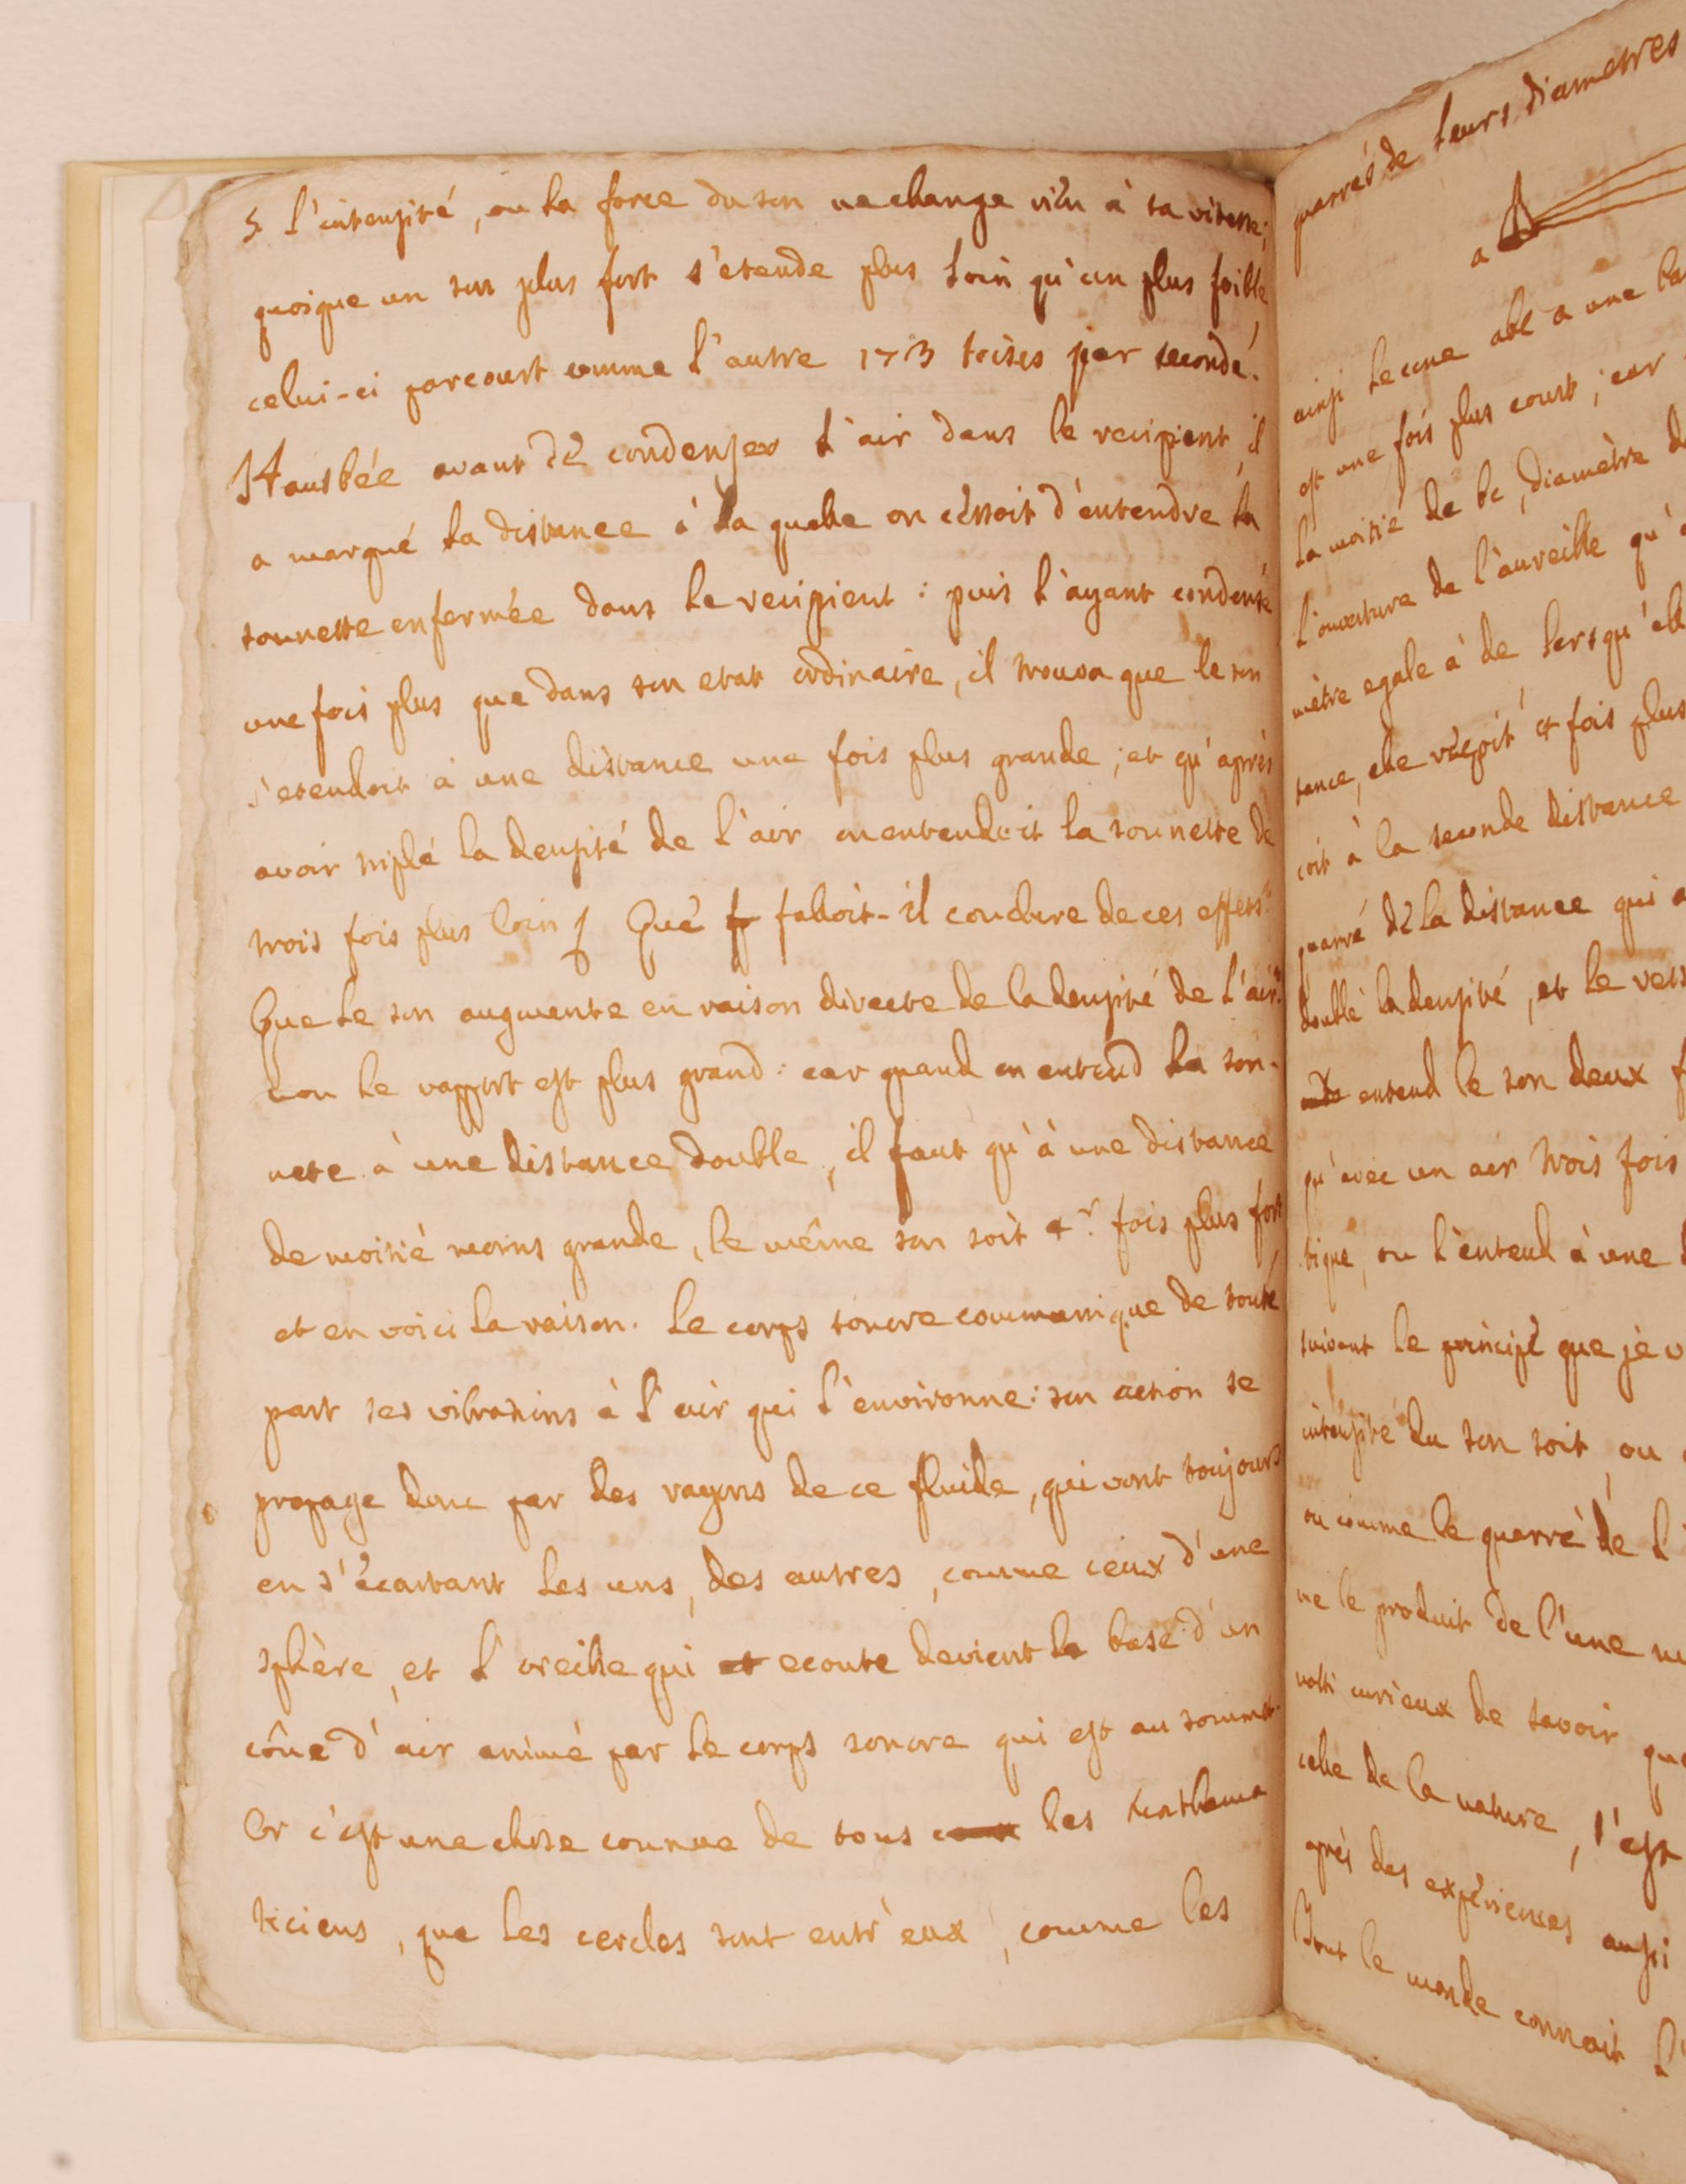 5. l'intensité, ou la force du son ne change rien à sa vitesse;
quoique un son plus fort s'etende plus loin qu'un plus foible,
celui-ci parcourt comme l'autre 173 toises par seconde.
Hausbée avant de condenser l'air dans le recipient, il
a marqué la distance à la quelle on cessoit d'entendre la
sonnette enfermée dans le recipient : puis l'ayant condensé
une fois plus que dans son etat ordinaire, il trouva que le son
s'etendoit à une distance une fois plus grande ; et qu'après
avoir triplé la densité de l'air on entendoit la sonnette de
trois fois plus loin Que falloit-il conclure de ces effets ?
Que le son augmente en raison directe de la densité de l'air?
non le rapport est plus grand : car quand on entend la son-
nete à une distance double, il faut qu'à une distance
de moitié moins grande, le même son soit 4 fois plus fort
et en voici la raison. Le corps sonore communique de toute
part ses vibrations à l'air qui l'environne : son action se
propage donc par des rayons de ce fluide, qui vont toujours
en s'écartant les uns, des autres, comme ceux d'une
sphère, et l'oreille qui ecoute devient la base d'un
cône d'air animé par le corps sonore qui est au sommet.
Or c'est une chose connue de tous les mathema
ticiens, que les cercles sont entr'eux, comme les
quarrés de leurs diametres
a
ainsi le cone abc a une
est une fois plus court ; car
la moitié de bc, diamètre
l'ouverture de l'aureille qu'
mètre egale à de lorsqu'
tance, elle reçoit 4 fois plus
coit à la seconde distance
quarré de la distance qui
double la densité, et le
entend le son deux
qu'avec un air trois fois
on l'entend à une
suivant le principe que je
intensité du son soit, ou
ou comme le quarré de l'
ne le produit de l'une
curieux de savoir
celle de la nature, c'est
après des expériences aussi
Tout le monde connait l'